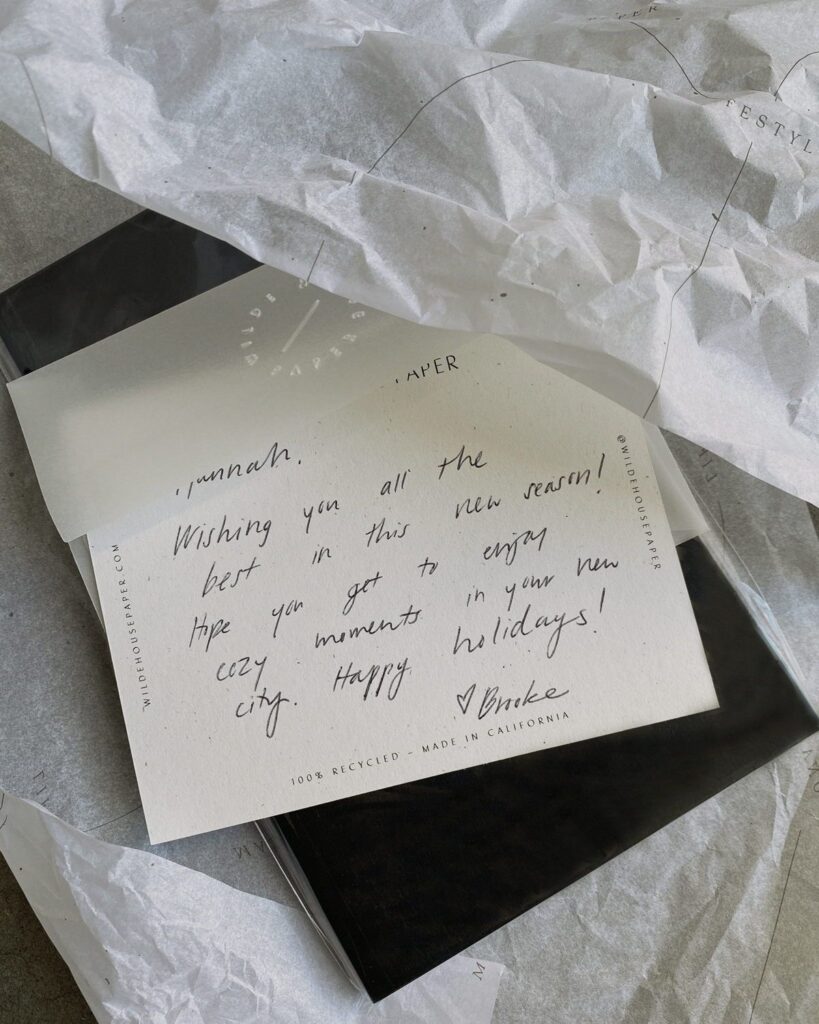 PAPER
FESTYL
WILDE
PAPER
PAPER
Hannah,
Wishing you all the
best in this new season!
Hope you get to enjoy
cozy moments in your new
city. Happy holidays!
♡ Brooke
WILDEHOUSEPAPER.COM
@WILDEHOUSEPAPER
100% RECYCLED – MADE IN CALIFORNIA